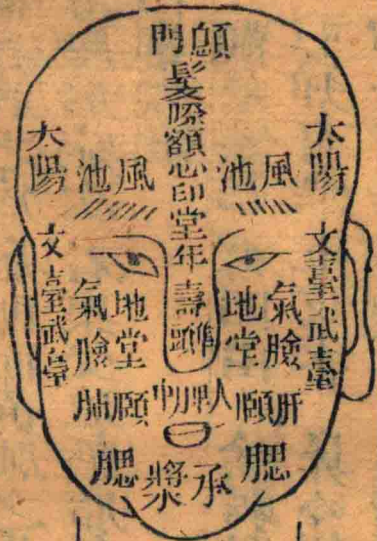 顖門
髮際額心印堂年壽準頭
太陽
風池
風池
太陽
文臺武臺
氣臉
地堂
地堂
氣臉
文臺武臺
肝頤
人中
頤肺
腮
承漿
腮